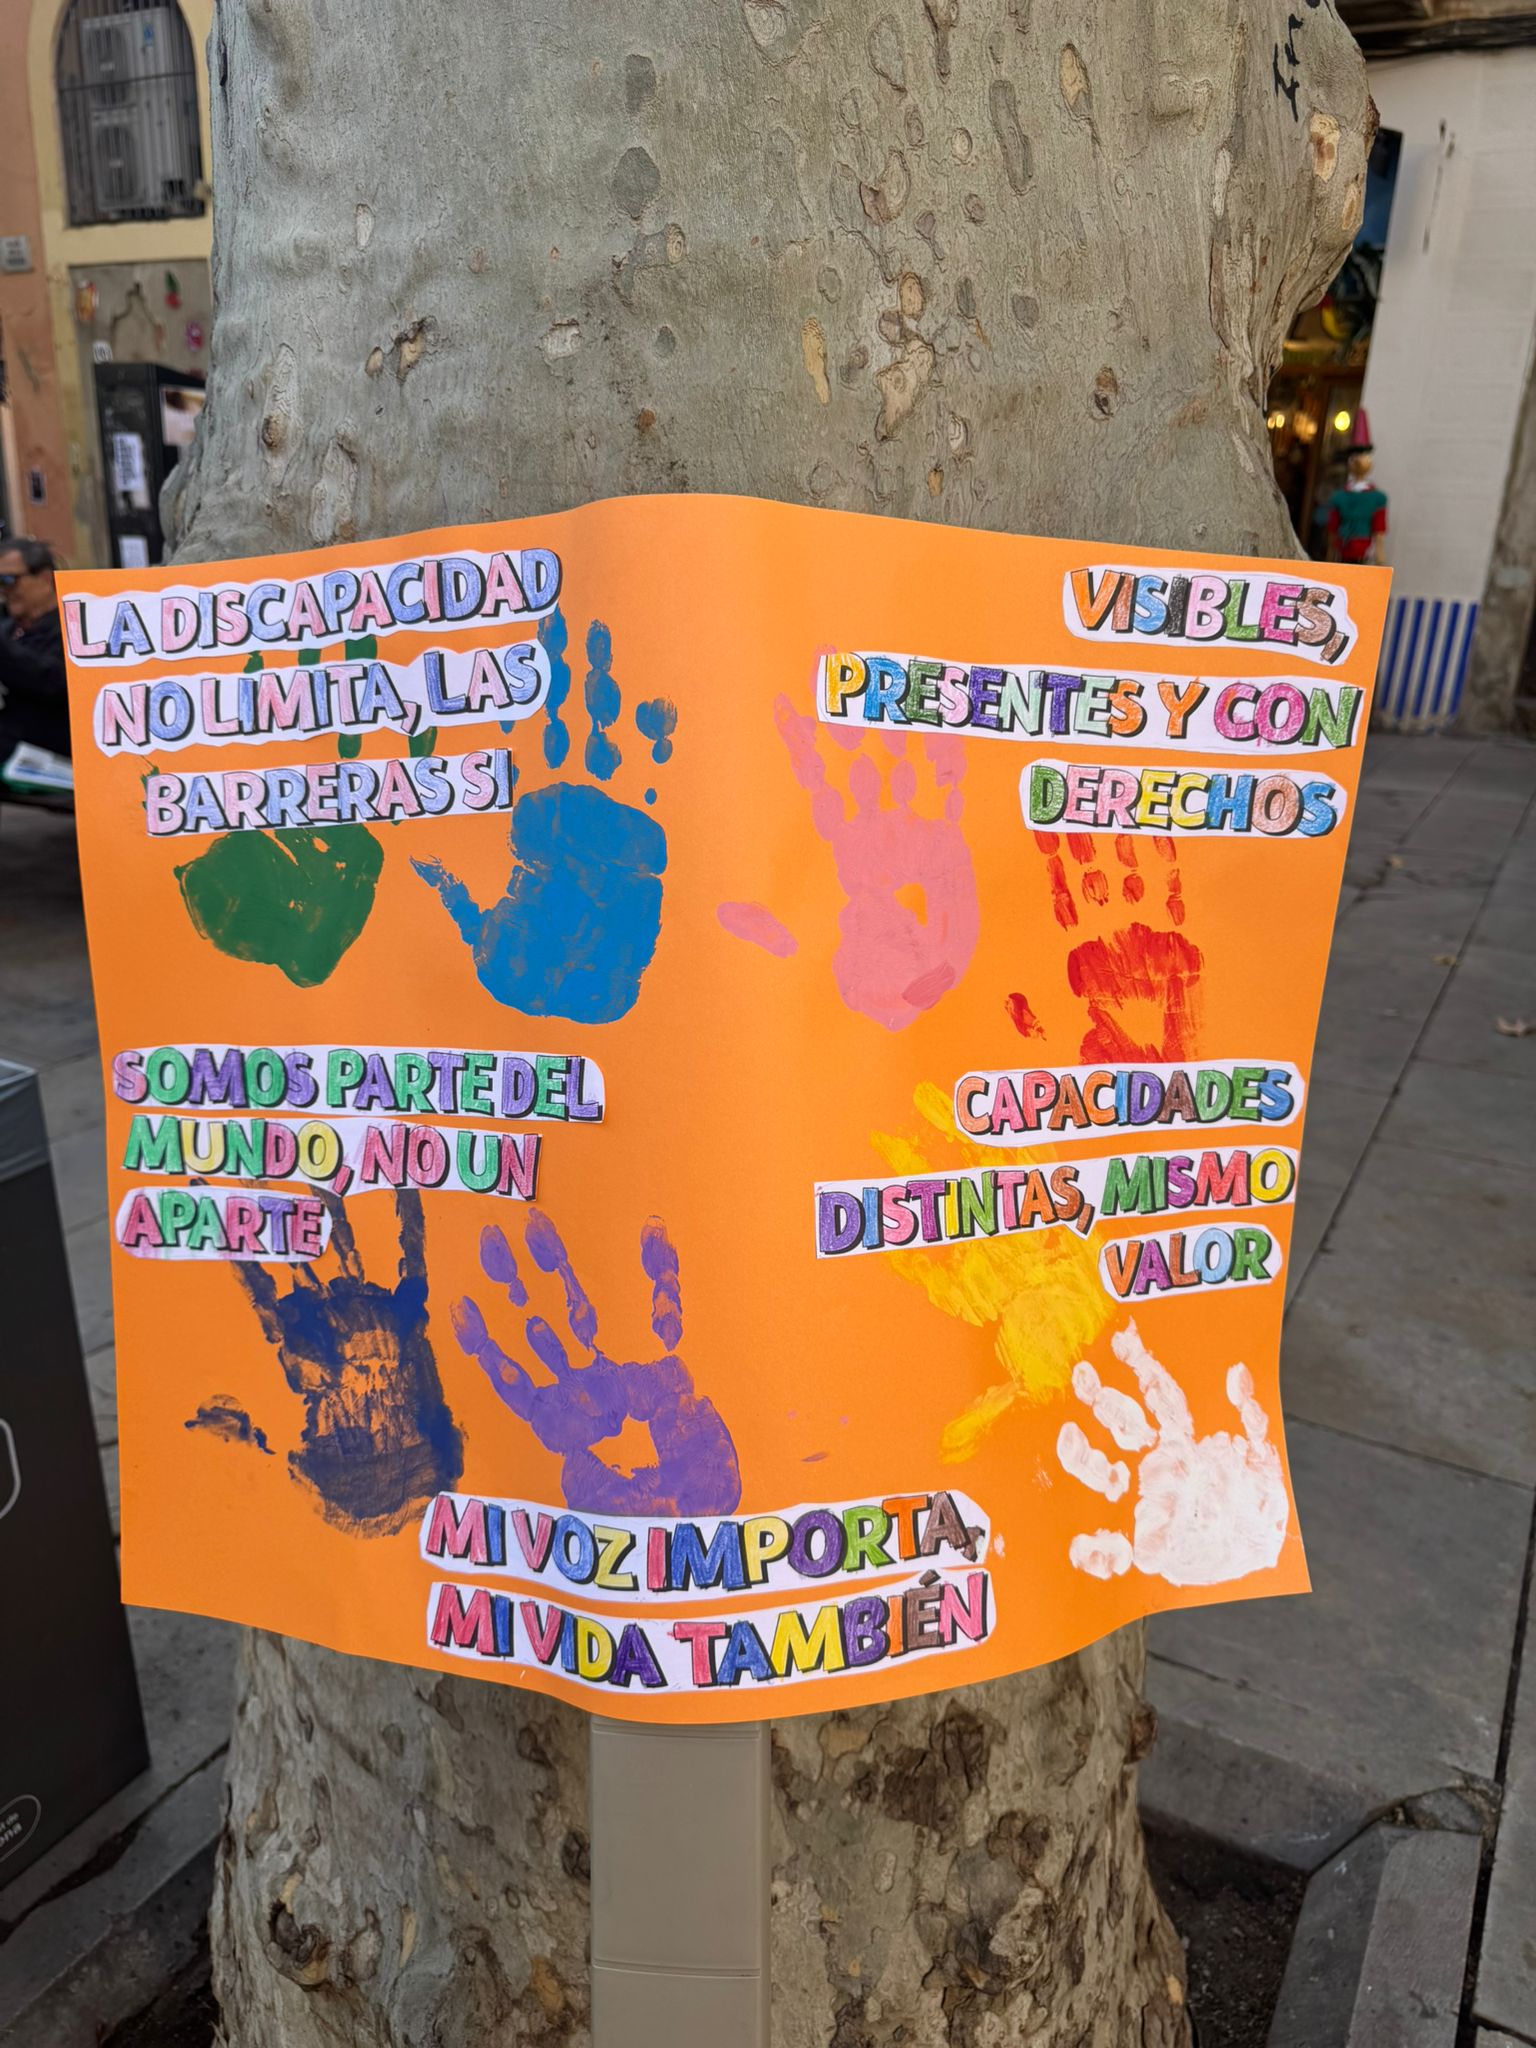 LA DISCAPACIDAD
NO LIMITA, LAS
BARRERAS SI
VISIBLES,
PRESENTES Y CON
DERECHOS
SOMOS PARTE DEL
MUNDO, NO UN
APARTE
CAPACIDADES
DISTINTAS, MISMO
VALOR
MI VOZ IMPORTA,
MI VIDA TAMBIÉN